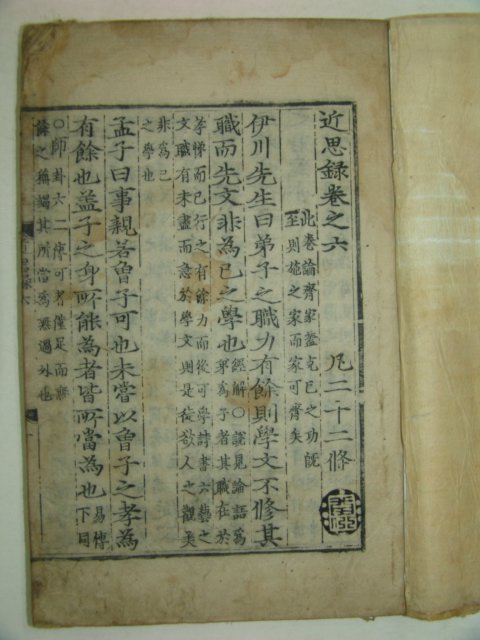 近思錄卷之六　凡二十二條
此卷論齊家蓋克己之功旣
至則施之家而家可齊矣
伊川先生曰弟子之職力有餘則學文不修其
職而先文非為己之學也
經解○說見論語爲
弟爲子者其職在於
孝悌而已行之有餘力而後可學詩書六藝之
文職有未盡而急於學文則是徒欲人之觀美
非爲己
之學也
孟子曰事親若曾子可也未嘗以曾子之孝為
有餘也蓋子之身所能為者皆所當為也
易傳
下同
○師卦六二傳可者僅足而無
餘之稱竭其所當爲無過外也